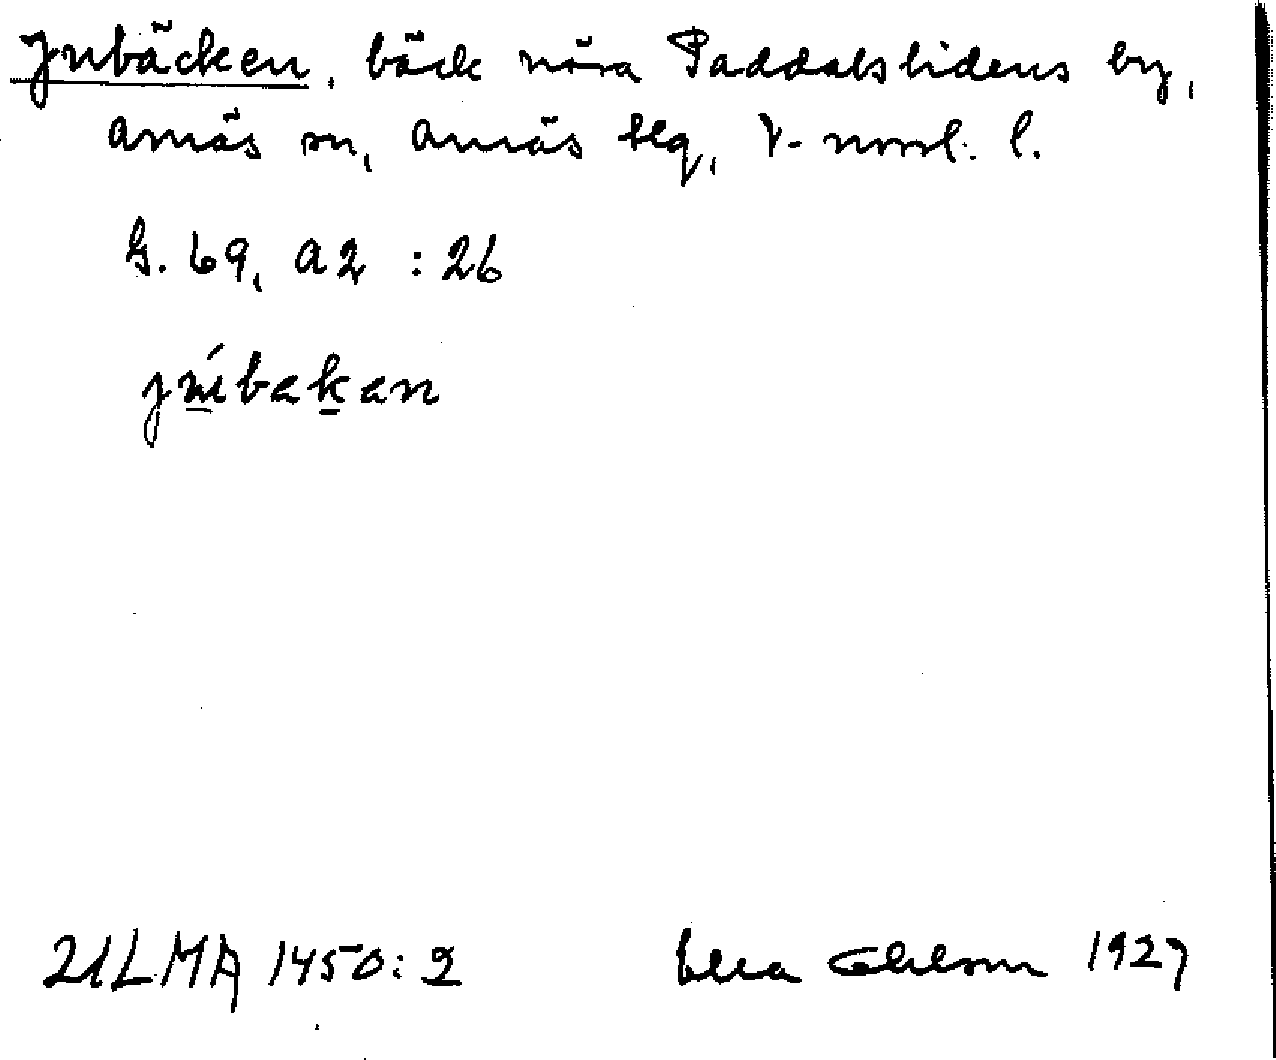 Jubäcken, bäck nära Paddalslidens by,
Arnäs sn, Arnäs tlg, V. norrl. l.
S. 69, a2 : 26
júbekan
ULMA 1450:2 Ella Ohlson 1927